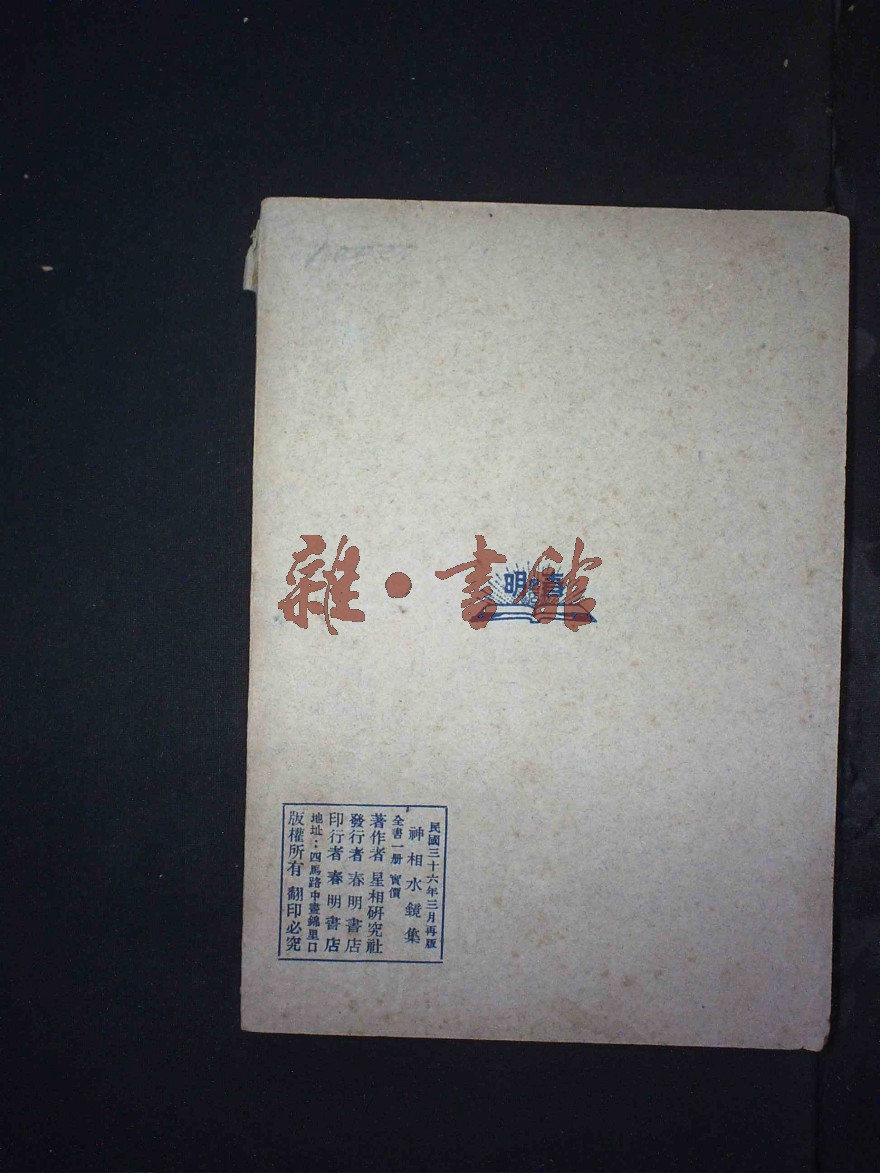 雜·書館
明春
民國三十六年三月再版
神相水鏡集
全書一册 實價
著作者 星相研究社
發行者 春明書店
印行者 春明書店
地址：四馬路中晝錦里口
版權所有 翻印必究